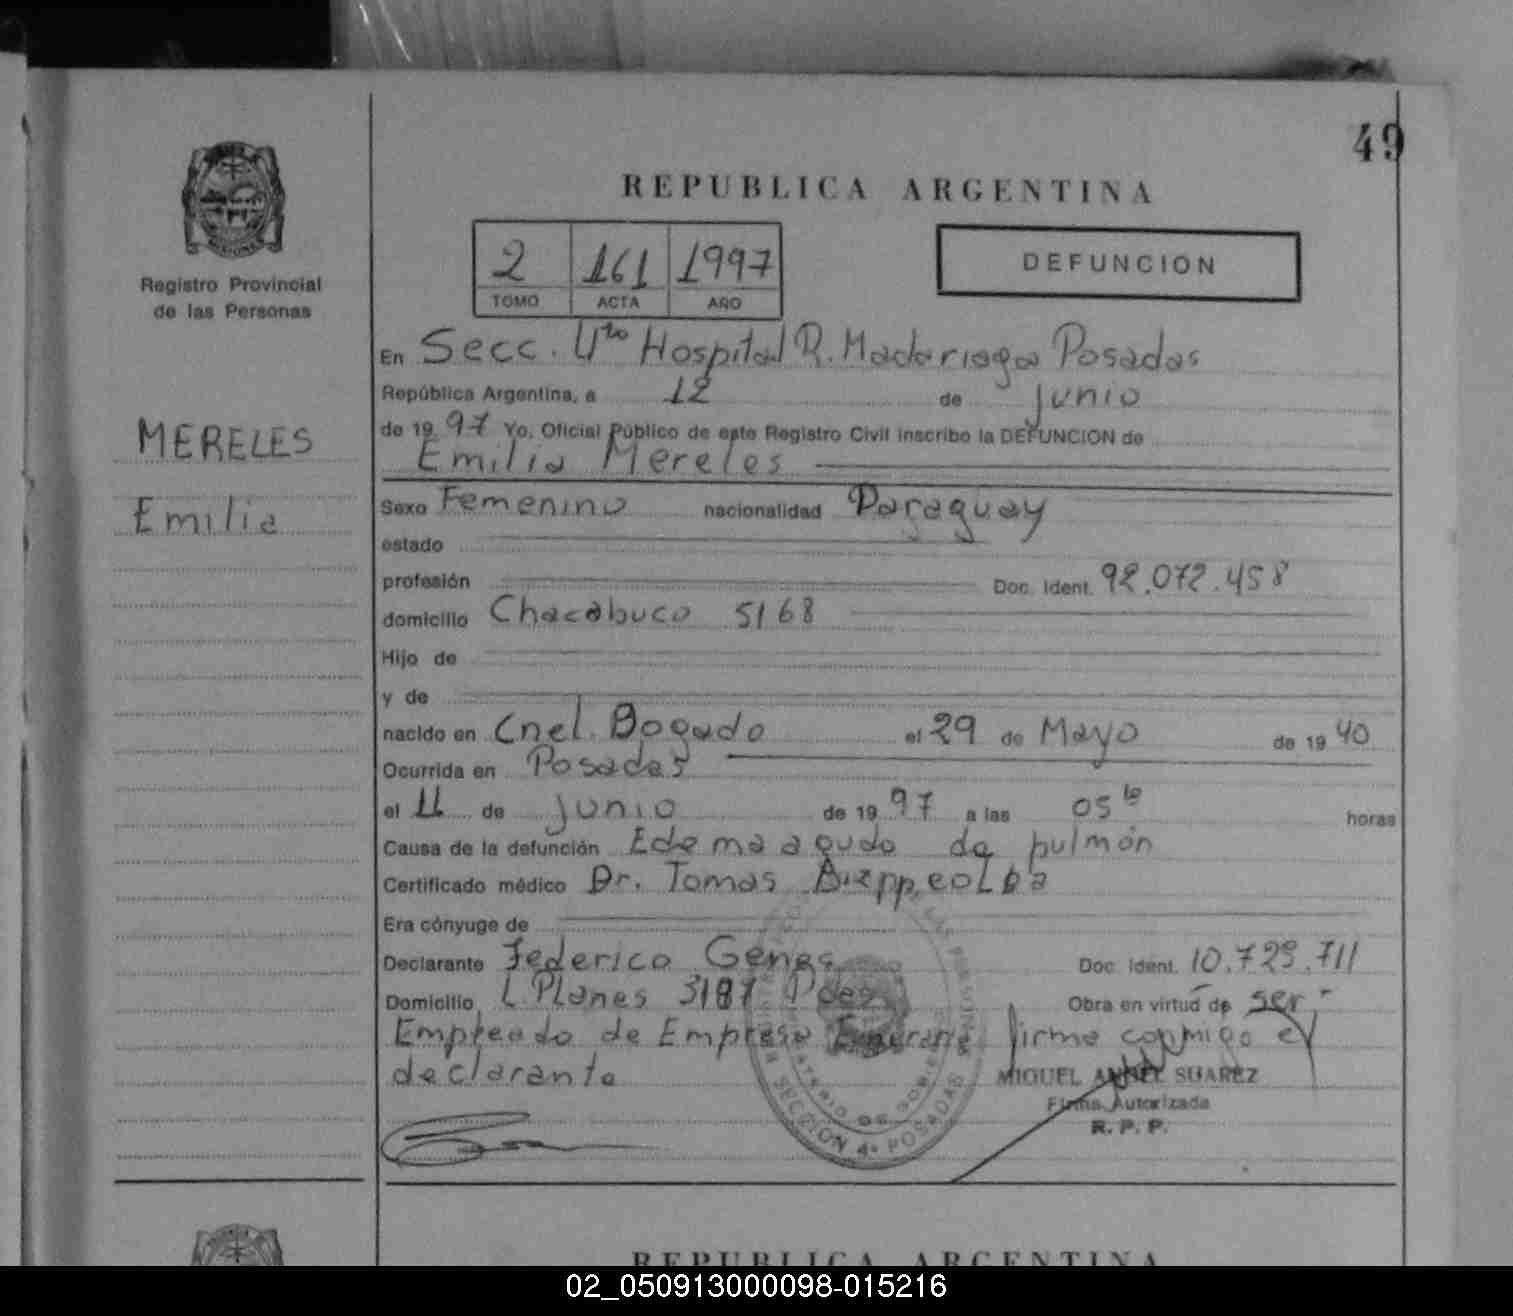 49
REPUBLICA ARGENTINA
Registro Provincial
de las Personas
2 161 1997
TOMO ACTA AÑO
DEFUNCION
En Secc. 4ta Hospital R. Madariaga Posadas
República Argentina, a 12 de junio
de 1997 Yo, Oficial Público de este Registro Civil inscribo la DEFUNCION de
Emilia Mereles
MERELES
Emilia
Sexo Femenino nacionalidad Paraguay
estado
profesión Doc. Ident. 92.072.458
domicilio Chacabuco 5168
Hijo de
y de
nacido en Cnel. Bogado el 29 de Mayo de 1940
Ocurrida en Posadas
el 11 de junio de 1997 a las 05 10 horas
Causa de la defunción Edema agudo de pulmón
Certificado médico Dr. Tomas
Era cónyuge de
Declarante Federico Genes Doc. Ident. 10.729.711
Domicilio L. Planes 3187 Pdas Obra en virtud de ser
Empleado de Empresa Funeraria firma conmigo el
declarante
MIGUEL ANGEL SUAREZ
Firma Autorizada
R. P. P.
SECCION 4a POSADAS
REPUBLICA ARGENTINA
02_050913000098-015216